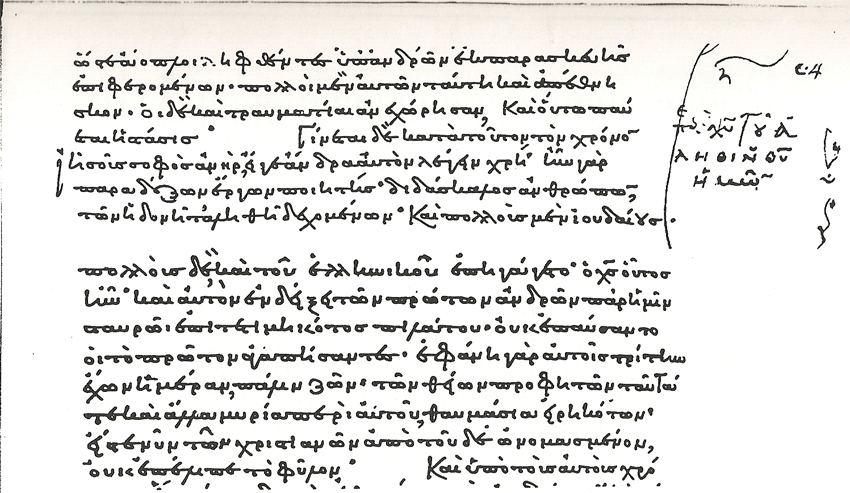 ὥστε ἄοπλοι ληφθέντες ὑπ' ἀνδρῶν ἐκ παρασκευῆς
ἐπιφερομένων· πολλοὶ μὲν αὐτῶν ταύτη καὶ ἀπέθνη
σκον· οἱ δὲ καὶ τραυματίαι ἀνεχώρησαν, Καὶ οὕτω παύ
εται ἡ στάσις· Γίνεται δὲ κατὰ τοῦτον τὸν χρόνο
ἰησοῦς σοφὸς ἀνήρ, εἴγε ἄνδρα αὐτὸν λέγειν χρή· ἦν γὰρ
παραδόξων ἔργων ποιητής· διδάσκαλος ἀνθρώπω,
τῶν ἡδονῆ τἀληθῆ δεχομένων· Καὶ πολλοὺς μὲν ἰουδαίους·
πολλοὺς δὲ καὶ τοῦ ἑλληνικοῦ ἐπηγάγετο· ὁ χς οὗτος
ἦν· καὶ αὐτὸν ἐνδείξει τῶν πρώτων ἀνδρῶν παρ' ἡμῖν
σταυρῶ ἐπιτετιμηκότος πιλάτου· οὐκ ἐπαύσαντο
οἱ τὸ πρῶτον ἀγαπήσαντες· ἐφάνη γὰρ αὐτοῖς τρίτην
ἔχων ἡμέραν, πάλιν ζῶν· τῶν θείων προφητῶν ταῦτά
τε καὶ ἄλλα μυρία περὶ αὐτοῦ, θαυμάσια εἰρηκότων·
εἰς τε νῦν τῶν χριστιανῶν ἀπὸ τοῦδε ὠνομασμένον,
οὐκ ἐπέλιπε τὸ φῦλον· Καὶ ὑπὸ τοὺς αὐτοὺς χρό
c·4
χῦ τοῦ ἀ
ληθινοῦ θῦ
ἡμῶν